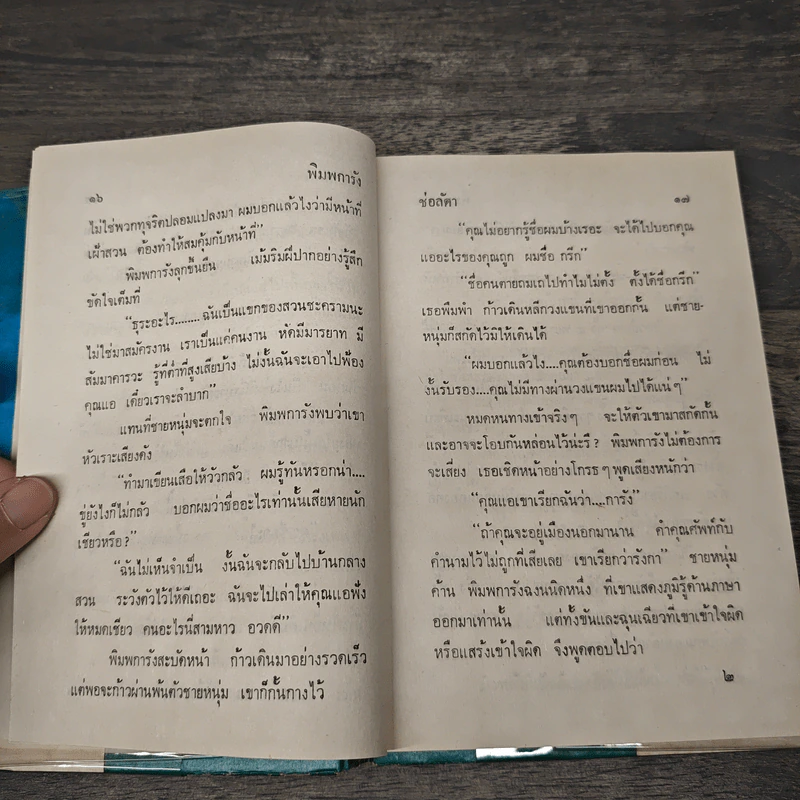 ๑๖
พิมพการัง
ไม่ใช่พวกทุจริตปลอมแปลงมา ผมบอกแล้วไงว่ามีหน้าที่
เฝ้าสวน ต้องทำให้สมคุ้มกับหน้าที่”
พิมพการังลุกขึ้นยืน เม้มริมฝีปากอย่างรู้สึก
ขัดใจเต็มที่
“ธุระอะไร........ฉันเป็นแขกของสวนชะครามนะ
ไม่ใช่มาสมัครงาน เราเป็นแค่คนงาน หัดมีมารยาท มี
สัมมาคารวะ รู้ที่ต่ำที่สูงเสียบ้าง ไม่งั้นฉันจะเอาไปฟ้อง
คุณแอ เดี๋ยวเราจะลำบาก”
แทนที่ชายหนุ่มจะตกใจ พิมพการังพบว่าเขา
หัวเราะเสียงดัง
“ทำมาเขียนเสือให้วัวกลัว ผมรู้ทันหรอกน่า....
ขู่ยังไงก็ไม่กลัว บอกผมว่าชื่ออะไรเท่านั้นเสียหายนัก
เชียวหรือ?”
“ฉันไม่เห็นจำเป็น งั้นฉันจะกลับไปบ้านกลาง
สวน ระวังตัวไว้ให้ดีเถอะ ฉันจะไปเล่าให้คุณแอฟัง
ให้หมดเชียว คนอะไรนี่สามหาว อวดดี”
พิมพการังสะบัดหน้า ก้าวเดินมาอย่างรวดเร็ว
แต่พอจะก้าวผ่านพ้นตัวชายหนุ่ม เขาก็กั้นกางไว้
ช่อลัดา
๑๗
“คุณไม่อยากรู้ชื่อผมบ้างเรอะ จะได้ไปบอกคุณ
แออะไรของคุณถูก ผมชื่อ กรีก”
“ชื่อคนตายถมเถไปทำไมไม่ตั้ง ตั้งได้ชื่อกรีก”
เธอพึมพำ ก้าวเดินหลีกวงแขนที่เขาออกกั้น แต่ชาย-
หนุ่มก็สกัดไว้มิให้เดินได้
“ผมบอกแล้วไง....คุณต้องบอกชื่อผมก่อน ไม่
งั้นรับรอง....คุณไม่มีทางผ่านวงแขนผมไปได้แน่ๆ”
หมดหนทางเข้าจริงๆ จะให้ตัวเขามาสกัดกั้น
และอาจจะโอบกันหล่อนไว้น่ะรึ? พิมพการังไม่ต้องการ
จะเสี่ยง เธอเชิดหน้าอย่างโกรธๆ พูดเสียงหนักว่า
“คุณแอเขาเรียกฉันว่า....การัง”
“ถ้าคุณจะอยู่เมืองนอกมานาน คำคุณศัพท์กับ
คำนามไว้ไม่ถูกที่เสียเลย เขาเรียกว่ารังกา” ชายหนุ่ม
ค้าน พิมพการังฉงนนิดหนึ่ง ที่เขาแสดงภูมิรู้ด้านภาษา
ออกมาเท่านั้น แต่ทั้งขันและฉุนเฉียวที่เขาเข้าใจผิด
หรือแสร้งเข้าใจผิด จึงพูดตอบไปว่า
๒